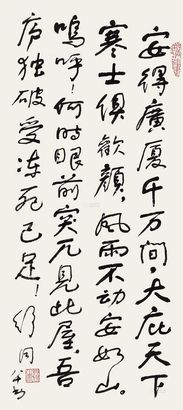 安得廣厦千万间，大庇天下
寒士俱歡顔，风雨不动安如山。
嗚呼！何时眼前突兀見此屋，吾
庐独破受冻死已足！舒同